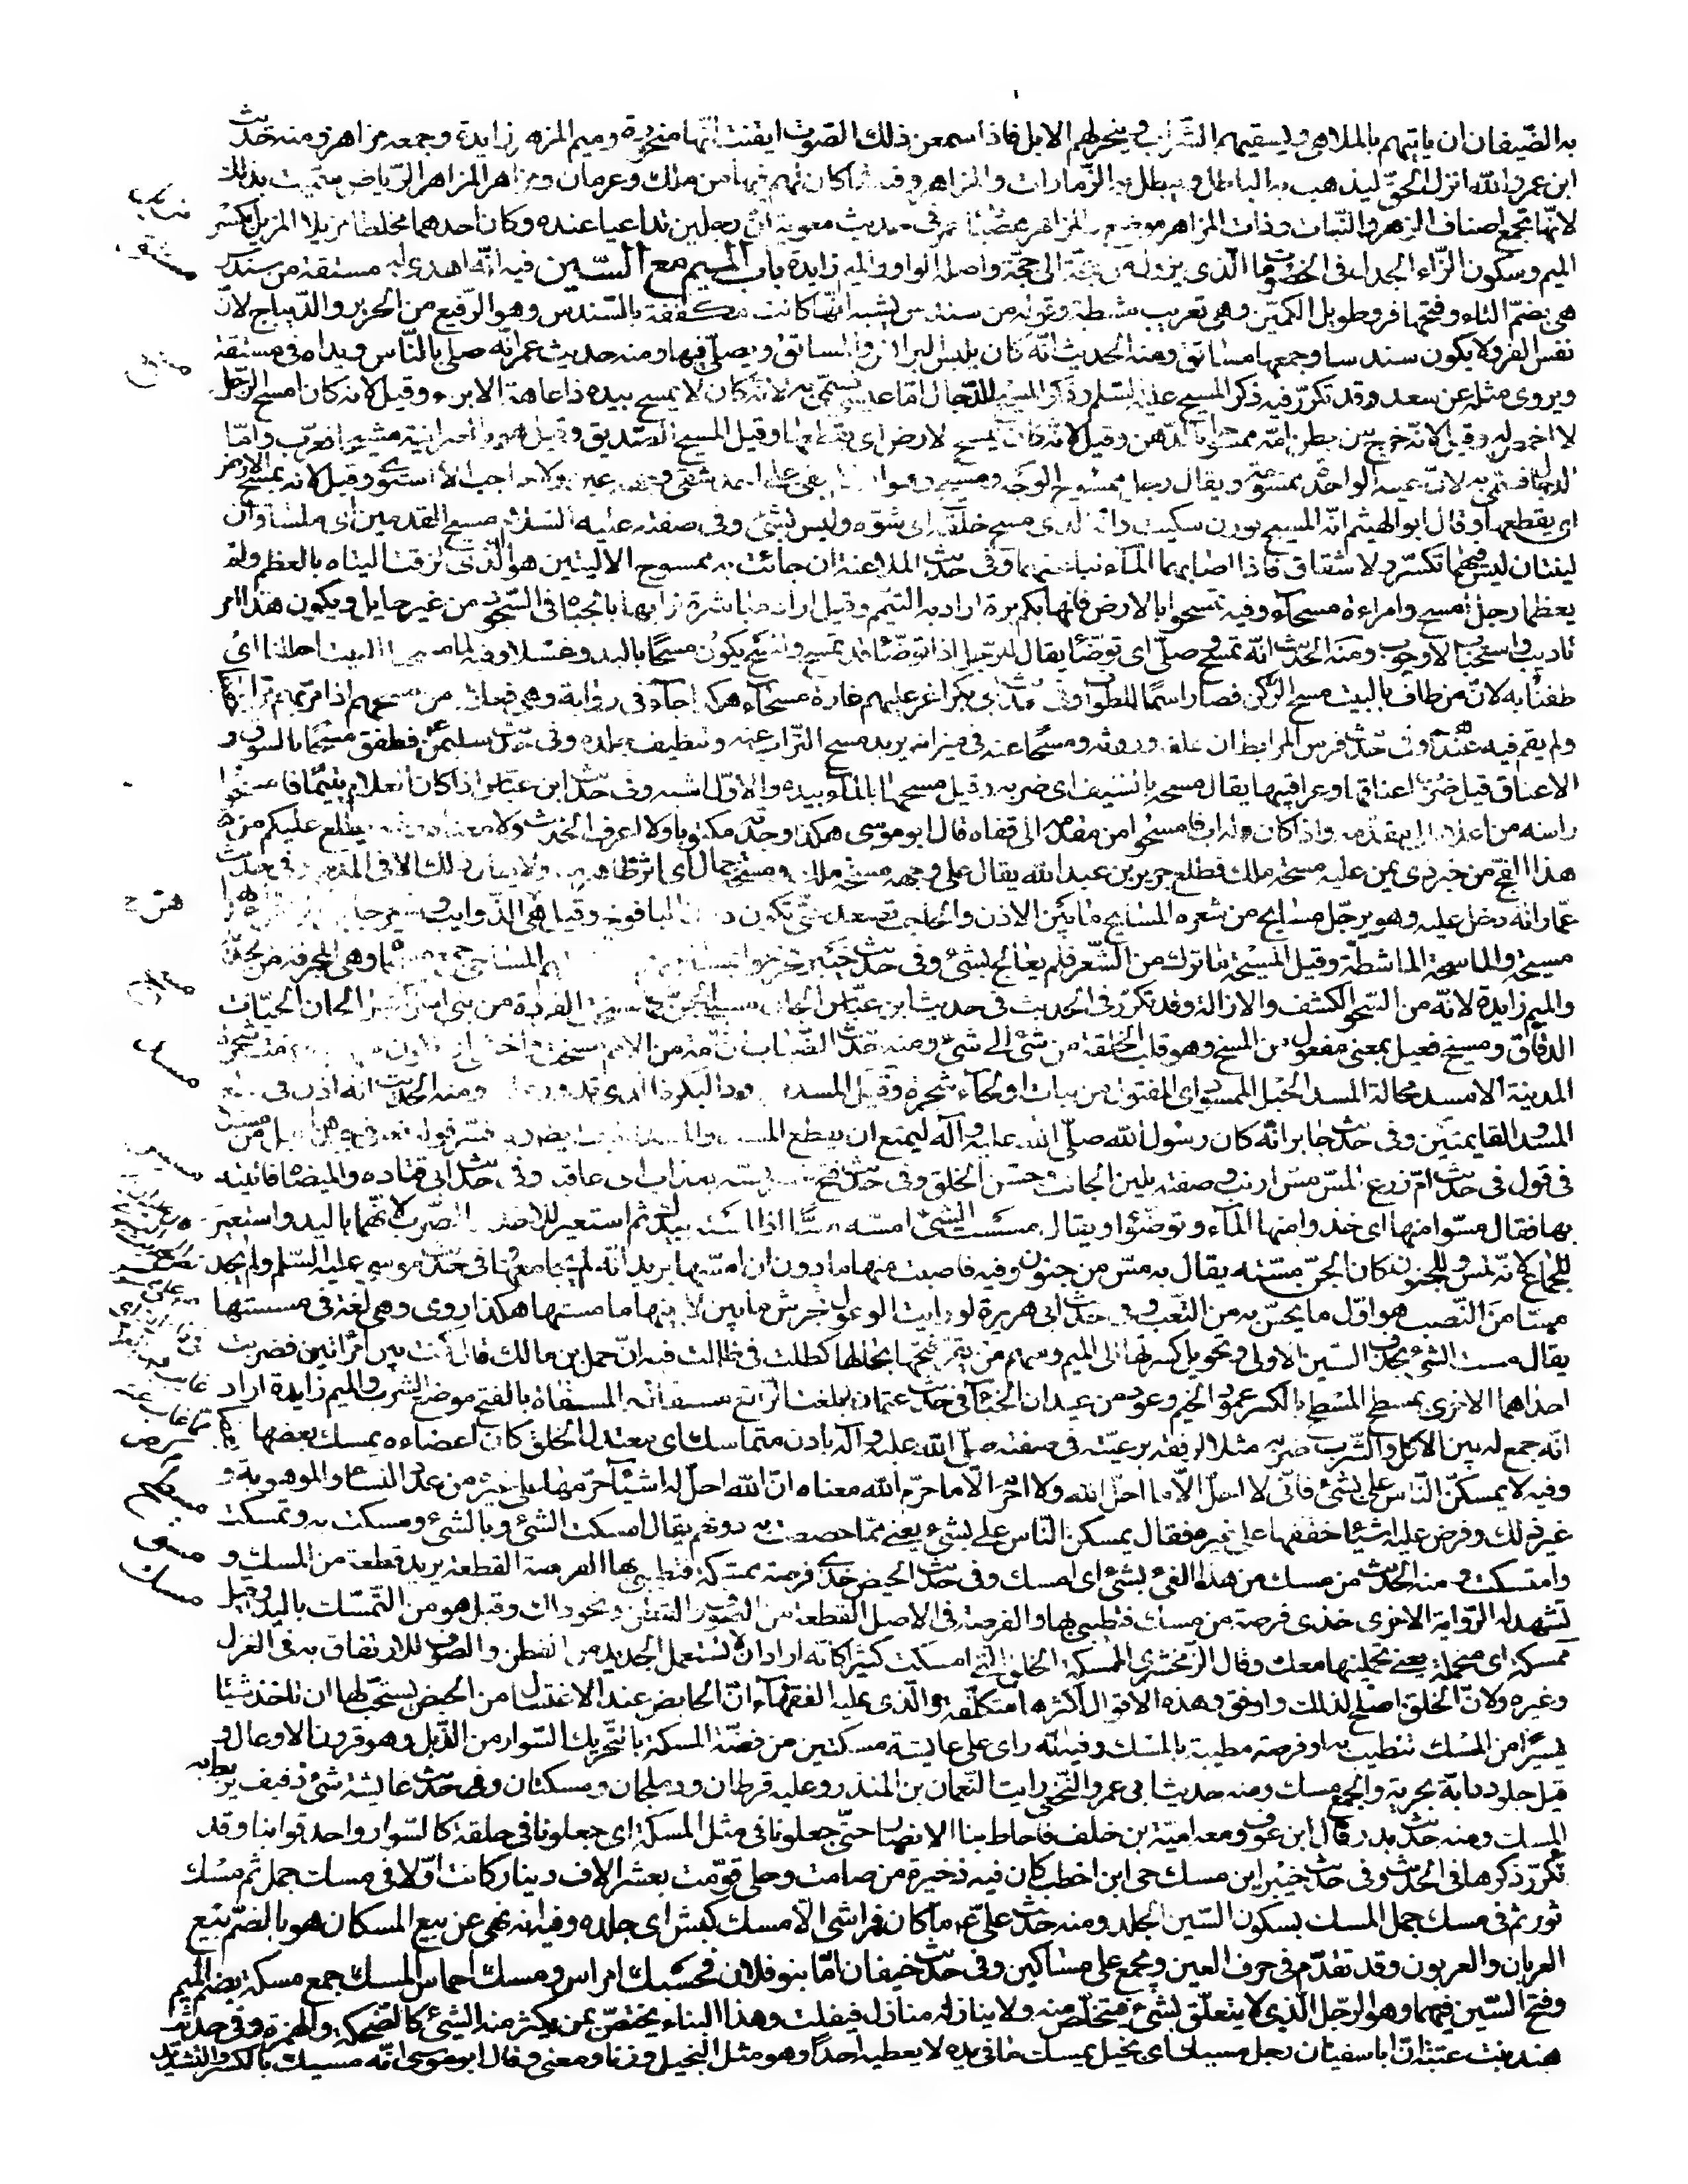 به الضّيفان ان ياتيهم بالملاهى ويسقيهم الشّراب وينحر لهم الابل فاذا سمعن ذلك الصّوت ايقنت انّها منحورة وميم المزهر زايدة وجمعه مزاهر ومنه حديث
ابن عمرو انّ الله انزل الحقّ ليذهب به الباطل ويبطل به الزّمارات والمزاهر وفيه فما كان لهم فيها من ملك وعرمان ومزاهر المزاهر الرّياض سمّيت بذلك
لانّها تجمع اصناف الزهر والنّبات وذات المزاهر موضع والمزاهر هضبات حمر فى حديث معوية انّ رجلين تداعيا عنده وكان احدهما مخلطا مزيلا المزيل بكسر
الميم وسكون الزّاء الجدل فى الخصومات الّذى يزول من حجّة الى حجّة واصله الواو والميم زايدة باب الميم مع السّين فيه انّه اهدى له مستقة من سندس
هى بضمّ التاء وفتحها فرو طويل الكمّين وهى تعريب مشطة وقوله من سندس يشبه انّها كانت مكفّفة بالسّندس وهو الرّفيع من الحرير والدّيباج لانّ
نفس الفرو لا يكون سندسا وجمعها مساتق ومنه الحديث انّه كان يلبس البرانس والمساتق ويصلّى فيها ومنه حديث عمر انّه صلّى بالنّاس ويداه فى مستقة
ويروى مثله عن سعد وقد تكرّر فيه ذكر المسيح عليه السّلم وذكر المسيح الدّجال امّا عيسى فسمّى به لانّه كان لا يمسح بيده ذا عاهة الا برىء وقيل لانه كان امسح الرّجل
لا اخمص له وقيل لانّه خرج من بطن امّه ممسوحا بالدّهن وقيل لانّه كان يمسح الارض اى يقطعها وقيل المسيح الصّدّيق وقيل هو بالعبرانية مشيحا فعرّب وامّا
الدجال فسمّى به لانّ عينه الواحدة ممسوحة ويقال رجل ممسوح الوجه ومسيح وهو ان لا يبقى على احد شقّى وجهه عين ولا حاجب الا استوى وقيل لانه يمسح الارض
اى يقطعها وقال ابو الهيثم انّه المسيح بوزن سكّيت وانّه الذى مسح خلقه اى شوّه وليس بشئ وفى صفته عليه السّلم مسيح القدمين اى ملساوان
ليّنتان ليس فيهما تكسّر ولا شقاق فاذا اصابهما المآء نبا عنهما وفى حديث الملاعنة ان جائت به ممسوح الاليتين هو الّذى لزقت اليتاه بالعظم ولم
يعظما رجل امسح وامراءة مسحاء وفيه تمسّحوا بالارض فانّها بكم برّة اراد به التيمّم وقيل اراد مباشرة ترابها بالجباه فى السّجود من غير حايل ويكون هذا امر
تاديب واستحباب لا وجوب ومنه الحديث انّه تمسّح وصلّى اى توضّأ يقال للرّجل اذا توضّأ قد تمسّح والمسح يكون مسحًا باليد وغسلا وفيه لما مسحنا البيت احللنا اى
طفنا به لانّ من طاف بالبيت مسح الرّكن فصار اسمًا للطواف وفى حديث ابى بكر اغر عليهم غارة مسحاء هكذا جآء فى رواية وهى فعلاء من مسحهم اذا مرّ بهم مرّا خفيفا
ولم يقم فيه عندهم وفى حديث فرس المرابط ان علفه وروثه ومسحًا عنه فى ميزانه يريد مسح التّراب عنه وتنظيف جلده وفى حديث سليمن فطفق مسحًا بالسوق و
الاعناق قيل ضرب اعناقها وعراقيبها يقال مسحه بالسّيف اى ضربه وقيل مسحها بالمآء بيده والاوّل اشبه وفى حديث ابن عبّاس اذا كان الغلام يتيمًا فامسحوا
راسه من اعلاه الى مقدّمه واذا كان له اب فامسحوا من مقدّمه الى قفاه قال ابو موسى هكذا وجدته مكتوبا ولا اعرف الحديث ولا معناه وفيه يطلع عليكم من
هذا الفجّ من خير ذى يمن عليه مسحة ملك فطلع جرير بن عبد الله يقال على وجهه مسحة ملك ومسحة جمال اى اثر ظاهر منه ولا يقال ذلك الا فى المدح وفى حديث
عمّار انّه دخل عليه وهو يرجّل مسايح من شعره المسايح ما بين الاذن والحاجب تصعد حتّى تكون دون اليافوخ وقيل هى الذّوايب وشعر جانبى
مسيحة والماسحة الماشطة وقيل المسيحة ما ترك من الشّعر فلم يعالج بشئ وفى حديث خيبر فخرجوا بمساحيهم المساحى جمع مسحاة وهى المجرفة من الحديد
والميم زايدة لانّه من السّحو الكشف والازالة وقد تكرّر فى الحديث فى حديث ابن عبّاس الجانّ مسيخ الجنّ كما مسخت القردة من بنى اسرائيل الجان الحيّات
الدقاق ومسيخ فعيل بمعنى مفعول من المسخ وهو قلب الخلقة من شئ الى شئ ومنه حديث الضّباب انّ امّة من الامم مسخت
المدينة الا مسد محالة المسد الحبل الممسود اى المفتول من نبات او لحاء شجرة وقيل المسد مرود البكرة الذى تدور عليه ومنه الحديث انه اذن فى قطع
المسد والقايمتين وفى حديث جابر انّه كان رسول الله صلّى الله عليه وآله ليمنع ان يقطع المسد
فى قول فى حديث امّ زرع المسّ مسّ ارنب وصفته بلين الجانب وحسن الخلق وفى حديث فتح خيبر فمسّه بعذاب اى عاقبه وفى حديث ابى قتاده والميضاة فاتيته
بها فقال مسّوا منها اى خذوا منها المآء وتوضّئوا ويقال مسست الشئ امسّه مسًّا اذا لمسته بيدك ثم استعير للاخذ والضّرب لانّهما باليد واستعير
للجماع لانّه لمس وللجنون كان الجنّ مسّته يقال به مسّ من جنون وفيه فاصبت منها ما دون ان امسّها يريد انه لم يجامعها فى حديث موسى عليه السّلم ولم يجد
مسّا من النّصب هو اوّل ما يحسّ به من التّعب وفى حديث ابى هريرة لو رايت الوعول تجرش ما بين لابتيها ما مستها هكذا روى وهى لغة فى مسستها
يقال مست الشئ بحذف السّين الاولى وتحويل كسرتها الى الميم ومنهم من يقرّ فتحتها بحالها كظلت فى ظللت فيه انّ حمل بن مالك قال كنت بين امرأتين فضربت
احداهما الاخرى بمسطح المسطح بالكسر عمود الخيمة وعود من عيدان الخباء فى حديث عثمان ابلغت الرّاتع مسقاته المسقاة بالفتح موضع الشرب والميم زايدة اراد
انّه جمع له بين الاكل والشّرب ضربه مثلا لرفقه برعيّته فى صفته صلّى الله عليه وآله بادن متماسك اى معتدل الخلق كان اعضاءه يمسك بعضها بعضا
وفيه لا يمسكنّ النّاس علىّ بشئ فانّى لا احلّ الّا ما احلّ الله ولا احرّم الّا ما حرّم الله معناه انّ الله احلّ له اشيآء حرّمها على غيره من عدد النساء والموهوبة و
غير ذلك وفرض عليه اشيآء خفّفها على غيره فقال لا يمسكنّ النّاس علىّ بشئ يعنى ممّا خصصت به دونهم يقال امسكت الشئ وبالشئ ومسكت به وتمسّكت
وامتسكت ومنه الحديث من مسك من هذا الفئ بشئ اى امسك وفى حديث الحيض خذى فرصة ممسّكة فتطيّبى بها الفرصة القطعة يريد قطعة من المسك و
تشهد له الرّواية الاخرى خذى فرصة من مسك فتطيّبى بها والفرصة فى الاصل القطعة من الصّوف والقطن ونحو ذلك وقيل هو من التّمسّك باليد وقيل
ممسكة اى متحمّلة يعنى تحملينها معك وقال الزّمخشرى الممسكة الخلق الّتى امسكت كثيرًا كانّه اراد ان لا تستعمل الجديد من القطن والصّوف للارتفاق به فى الغزل
وغيره ولانّ الخلق اصلح لذلك واوفق وهذه الاقوال اكثرها متكلّفة والّذى عليه الفقهآء انّ الحايض عند الاغتسال من الحيض يستحبّ لها ان تاخذ شيئا
يسيرًا من المسك تتطيّب به او فرصة مطيبة بالمسك وفيه انّه راى على عايشة مسكتين من فضّة المسكة بالتّحريك السّوار من الذّبل وهو قرون الاوعال و
قيل جلود دابّة بحرية والجمع مسك ومنه حديث ابى عمرو النّخعى رايت النّعمان بن المنذر وعليه قرطان ودملجان ومسكتان وفى حديث عايشة شئ ذفيف يربط به
المسك ومنه حديث بدر قال ابن عوف ومعه اميّة بن خلف فاحاط بنا الانصار حتّى جعلونا فى مثل المسكة اى جعلونا فى حلقة كالسّوار واحدقوا بنا وقد
تكرّر ذكرها فى الحديث وفى حديث خيبر اين مسك حى ابن اخطب كان فيه ذخيرة من صامت وحلى قوّمت بعشر الاف دينار كانت اوّلا فى مسك جمل ثم مسك
ثور ثم فى مسك جمل المسك بسكون السّين الجلد ومنه حديث علىّ ع ما كان فراشى الّا مسك كبش اى جلده وفيه انه نهى عن بيع المسكان هو بالضمّ بيع
العربان والعربون وقد تقدّم فى حرف العين ويجمع على مساكين وفى حديث خيفان امّا بنو فلان فحسك امراس ومسك احماس المسك جمع مسكة بضم الميم
وفتح السّين فيهما وهو الرجّل الّذى لا يتعلّق بشئ فيتخلّص منه ولا ينازله منازل فيفلت وهذا البناء يختصّ بمن يكثر منه الشئ كالضّحكة والهمزة وفى حديث
هند بنت عتبة انّ ابا سفيان رجل مسيك اى بخيل يمسك ما فى يديه لا يعطيه احدًا وهو مثل البخيل وزنا ومعنى وقال ابو موسى انّه مسّيك بالكسر والتشديد